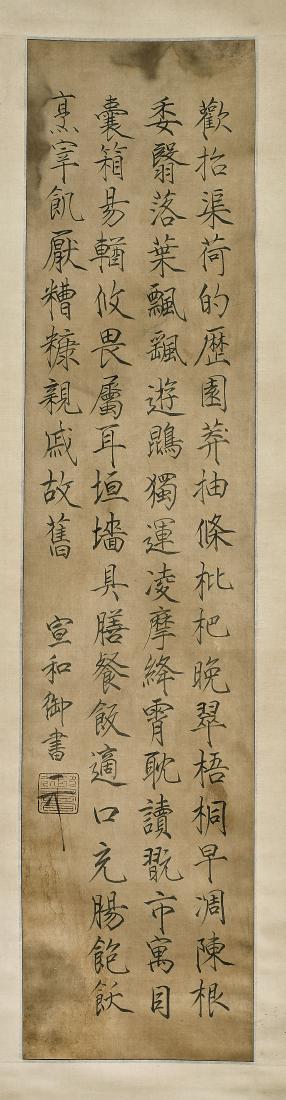 歡招渠荷的歷園莽抽條枇杷晚翠梧桐早凋陳根
委翳落葉飄颻遊鵾獨運凌摩絳霄耽讀翫市寓目
囊箱易輶攸畏屬耳垣墻具膳餐飯適口充腸飽飫
烹宰飢厭糟糠親戚故舊
宣和御書